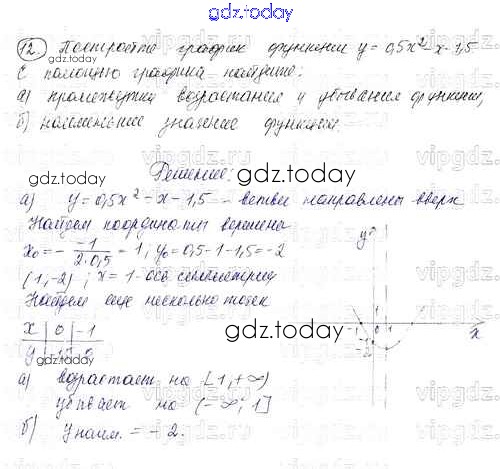 gdz.today
12. Постройте график функции y = 0,5x² - x - 1,5
С помощью графика найдите:
gdz.today
а) промежутки возрастания и убывания функции;
б) наименьшее значение функции.
Решение:
gdz.today
а) y = 0,5x² - x - 1,5 - ветви направлены вверх
Найдем координаты вершины
x₀ = - -1/2·0,5 = 1, y₀ = 0,5-1-1,5 = -2
(1,-2); x = 1 - ось симметрии
Найдем еще несколько точек
x 0 -1
y
gdz.today
y
1
-1 0 1 x
-2
а) возрастает на [1, +∞)
убывает на (-∞; 1]
б) y наим. = -2.
gdz.today
vipgdz